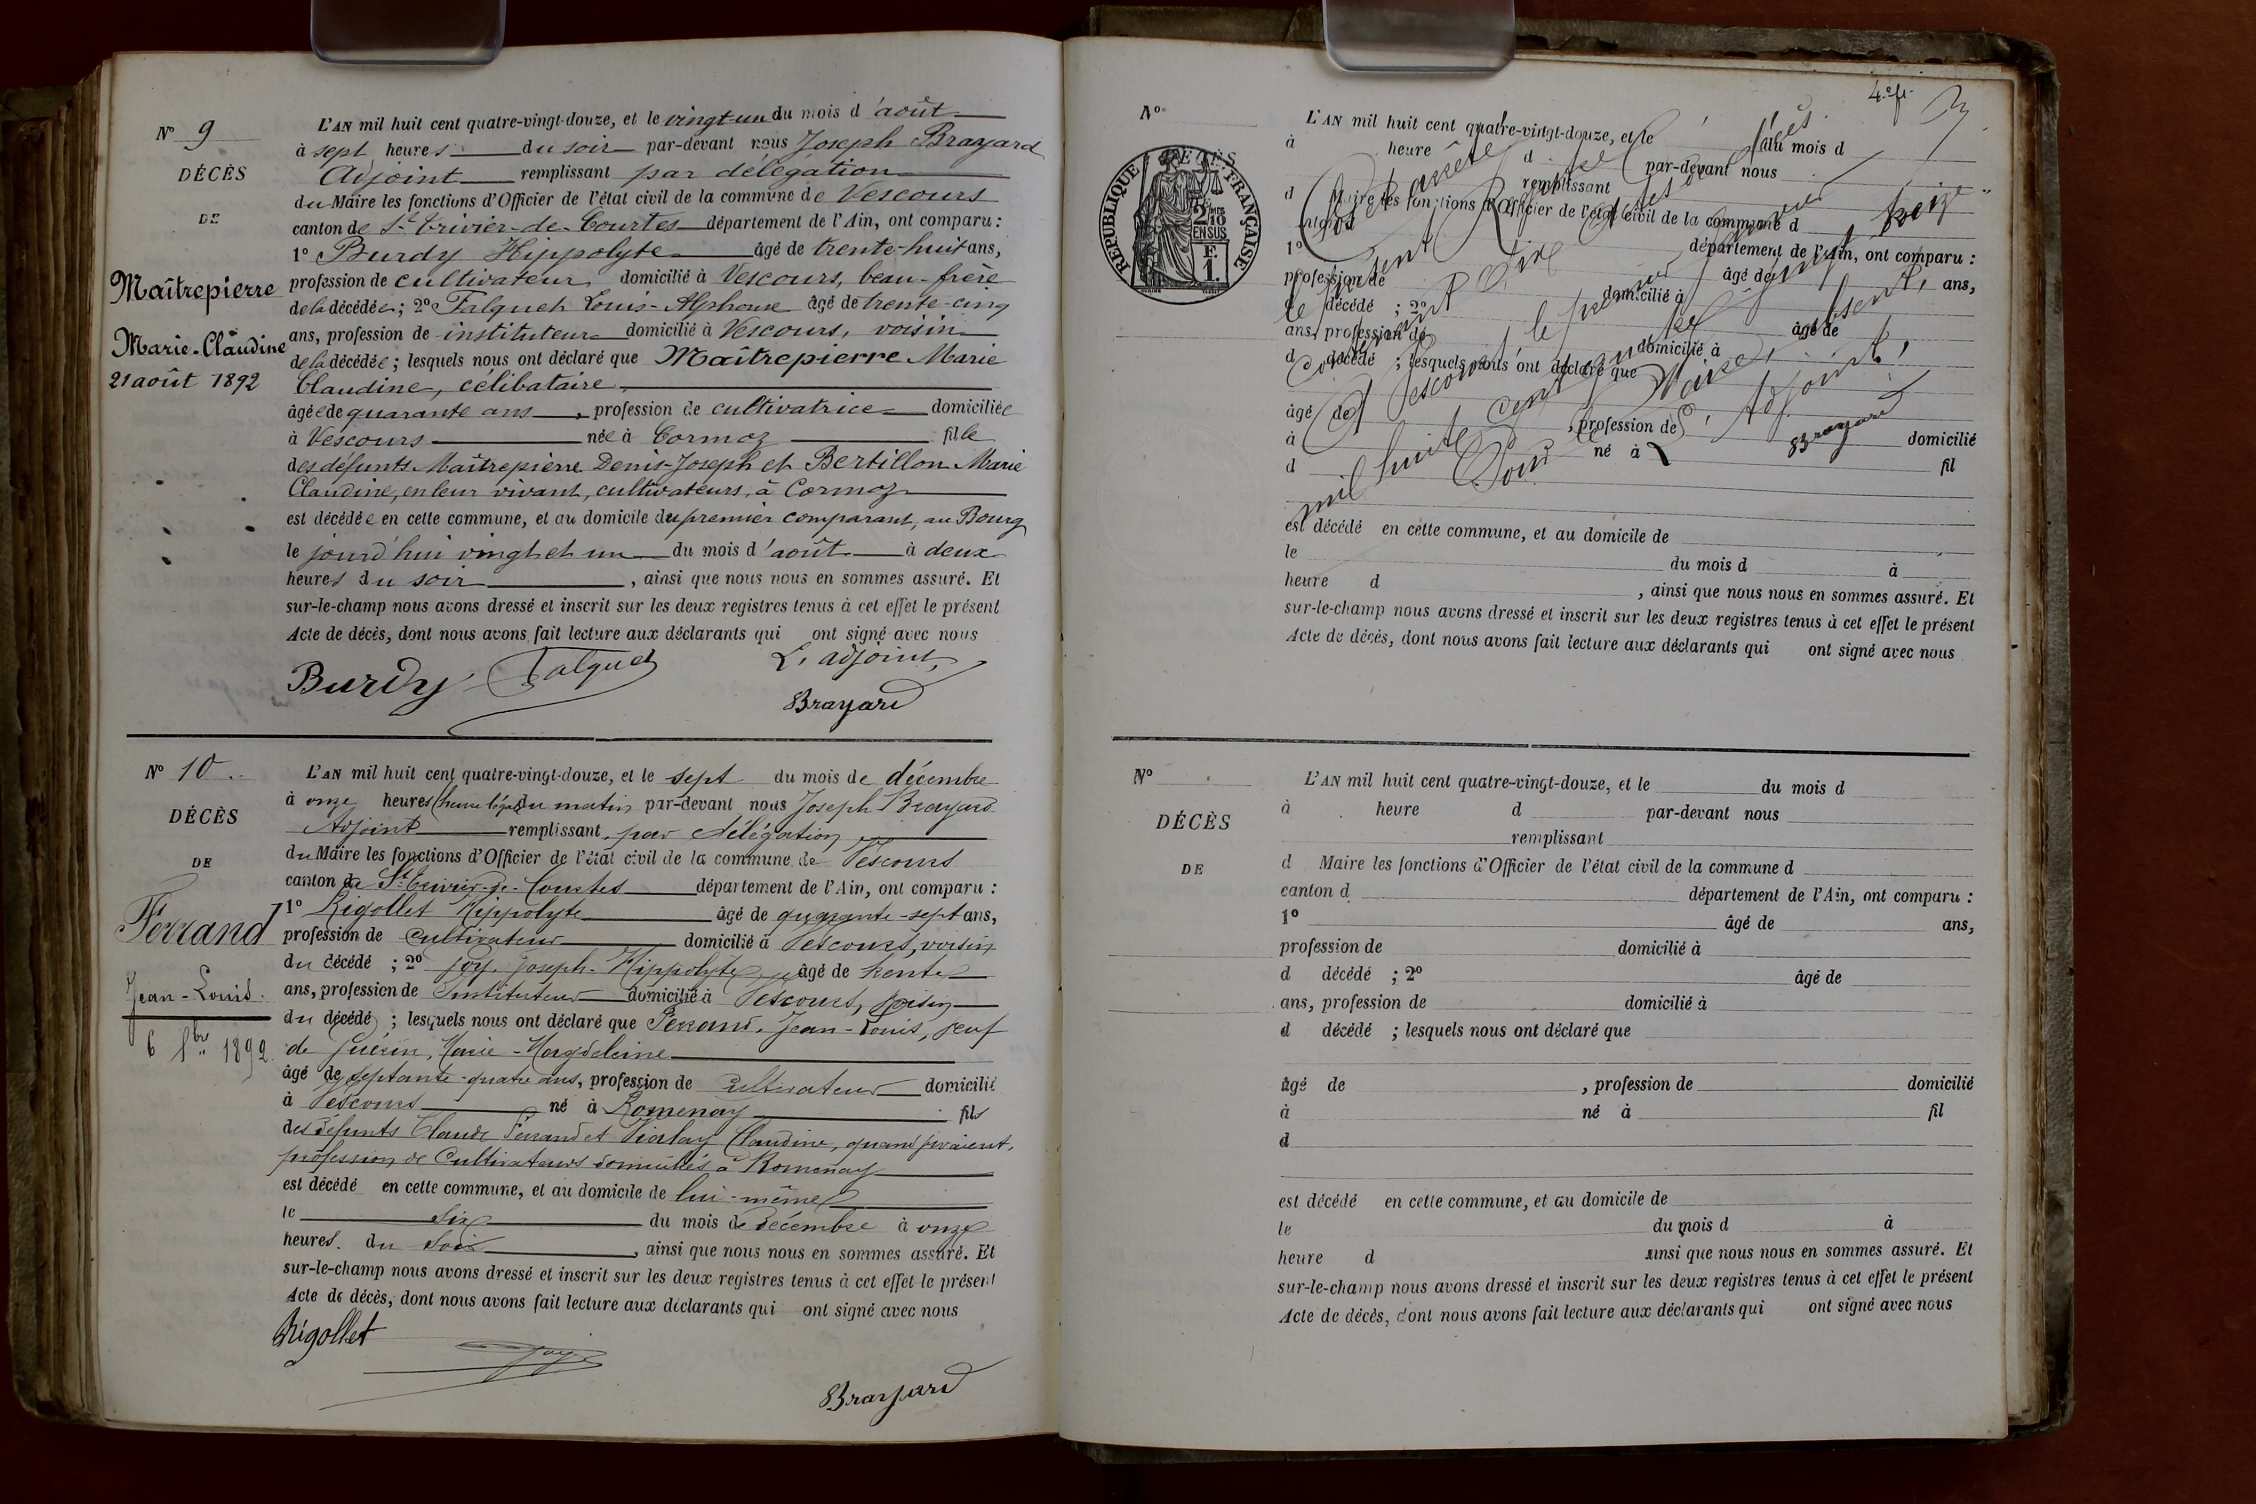 N° 9
DÉCÈS
DE
Maîtrepierre
Marie-Claudine
21 août 1892
L'AN mil huit cent quatre-vingt-douze, et le vingt-un du mois d'août
à sept heures du soir par-devant nous Joseph Brayard
Adjoint remplissant par délégation
du Maire les fonctions d'Officier de l'état civil de la commune de Vescours
canton de St-Trivier-de-Courtes département de l'Ain, ont comparu :
1° Burdy Hippolyte âgé de trente-huit ans,
profession de cultivateur domicilié à Vescours, beau-frère
de la décédée ; 2° Falquet Louis-Alphonse âgé de trente-cinq
ans, profession de instituteur domicilié à Vescours, voisin
de la décédée ; lesquels nous ont déclaré que Maîtrepierre Marie
Claudine, célibataire
âgée de quarante ans, profession de cultivatrice domiciliée
à Vescours née à Cormoz fille
des défunts Maîtrepierre Denis-Joseph et Bertillon Marie
Claudine, en leur vivant, cultivateurs, à Cormoz
est décédée en cette commune, et au domicile du premier comparant, au Bourg
le jourd'hui vingt et un du mois d'août à deux
heures du soir, ainsi que nous nous en sommes assuré. Et
sur-le-champ nous avons dressé et inscrit sur les deux registres tenus à cet effet le présent
Acte de décès, dont nous avons fait lecture aux déclarants qui ont signé avec nous
L'adjoint,
Burdy Falquet
Brayard
N° 10
DÉCÈS
DE
Ferrand
Jean-Louis.
6 Xbre 1892
L'AN mil huit cent quatre-vingt-douze, et le sept du mois de décembre
à onze heures (heure légale) du matin par-devant nous Joseph Brayard
Adjoint remplissant par délégation
du Maire les fonctions d'Officier de l'état civil de la commune de Vescours
canton de St-Trivier-de-Courtes département de l'Ain, ont comparu :
1° Rigollet Hippolyte âgé de quarante-sept ans,
profession de cultivateur domicilié à Vescours, voisin
du décédé ; 2° Joly Joseph-Hippolyte, âgé de trente
ans, profession de Instituteur domicilié à Vescours, voisin
du décédé ; lesquels nous ont déclaré que Ferrand, Jean-Louis, veuf
de Guérin, Marie-Magdeleine
âgé de septante-quatre ans, profession de cultivateur domicilié
à Vescours né à Romenay fils
des défunts Claude Ferrand et Vialay Claudine, quand vivaient,
profession de Cultivateurs domiciliés à Romenay
est décédé en cette commune, et au domicile de lui-même
le six du mois de décembre à onze
heures du soir, ainsi que nous nous en sommes assuré. Et
sur-le-champ nous avons dressé et inscrit sur les deux registres tenus à cet effet le présent
Acte de décès, dont nous avons fait lecture aux déclarants qui ont signé avec nous
Rigollet
Brayard
4e ft.
N°
DÉCÈS
RÉPUBLIQUE FRANÇAISE
2/10 EN SUS
F. 1.
L'AN mil huit cent quatre-vingt-douze, et le du mois d
à heure d par-devant nous
remplissant
d Maire les fonctions d'Officier de l'état civil de la commune d
canton d département de l'Ain, ont comparu :
1° âgé de ans,
profession de domicilié à
d décédé ; 2° âgé de
ans, profession de domicilié à
d décédé ; lesquels nous ont déclaré que
âgé de , profession de domicilié
à né à fil
d
est décédé en cette commune, et au domicile de
le du mois d à
heure d , ainsi que nous nous en sommes assuré. Et
sur-le-champ nous avons dressé et inscrit sur les deux registres tenus à cet effet le présent
Acte de décès, dont nous avons fait lecture aux déclarants qui ont signé avec nous
Clos et arrêté
le présent Registre des décès
contenant dix actes
A Vescours, le premier janvier
mil huit cent quatre vingt treize
Pour le Maire absent,
L'Adjoint,
Brayard
N°
DÉCÈS
DE
L'AN mil huit cent quatre-vingt-douze, et le du mois d
à heure d par-devant nous
remplissant
d Maire les fonctions d'Officier de l'état civil de la commune d
canton d département de l'Ain, ont comparu :
1° âgé de ans,
profession de domicilié à
d décédé ; 2° âgé de
ans, profession de domicilié à
d décédé ; lesquels nous ont déclaré que
âgé de , profession de domicilié
à né à fil
d
est décédé en cette commune, et au domicile de
le du mois d à
heure d ainsi que nous nous en sommes assuré. Et
sur-le-champ nous avons dressé et inscrit sur les deux registres tenus à cet effet le présent
Acte de décès, dont nous avons fait lecture aux déclarants qui ont signé avec nous